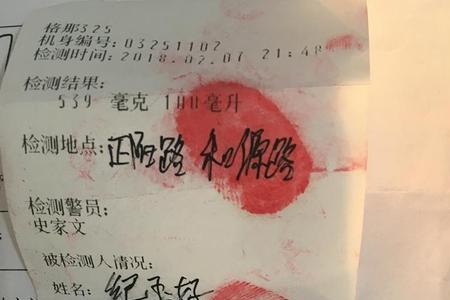 格那325
机身编号:03251102
检测时间:2018.02.07 21:48
检测结果:
539 毫克 100毫升
检测地点: 路 和 路
检测警员:
史家文
被检测人情况:
姓名: 纪